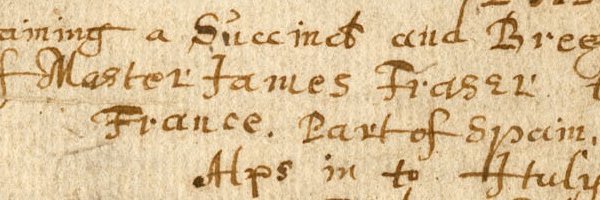 aining a Succinct and Breef
f Master James Fraser t
France. Part of Spain,
Alps in to Italy